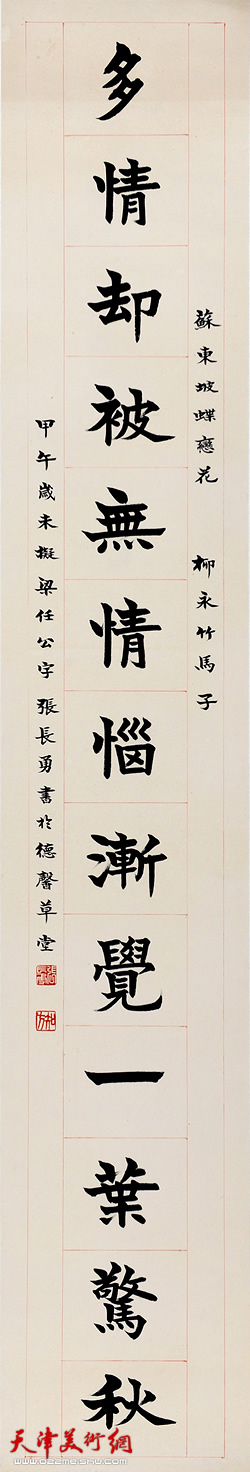 蘇東坡蝶戀花　柳永竹馬子
多情却被無情惱漸覺一葉驚秋
甲午歲末擬梁任公字張長勇書於德馨草堂
天津美術網
www.022meishu.com